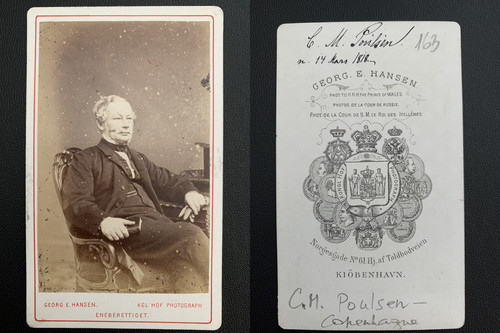 GEORG. E. HANSEN.
KGL. HOF PHOTOGRAPH
ENEBERETTIGET.
C. M. Poulsen.
163
n. 14 Mars 1818.
GEORG. E. HANSEN.
PHOT. TO H.R.H. THE PRINCE OF WALES.
PHOTOS. DE LA COUR DE RUSSIE.
PHOT. DE LA COUR DE S. M. LE ROI DES HELLÈNES.
Norjesgade No. 61 Hj. af Toldbodveien
KIÖBENHAVN.
C.M. Poulsen -
Copenhague